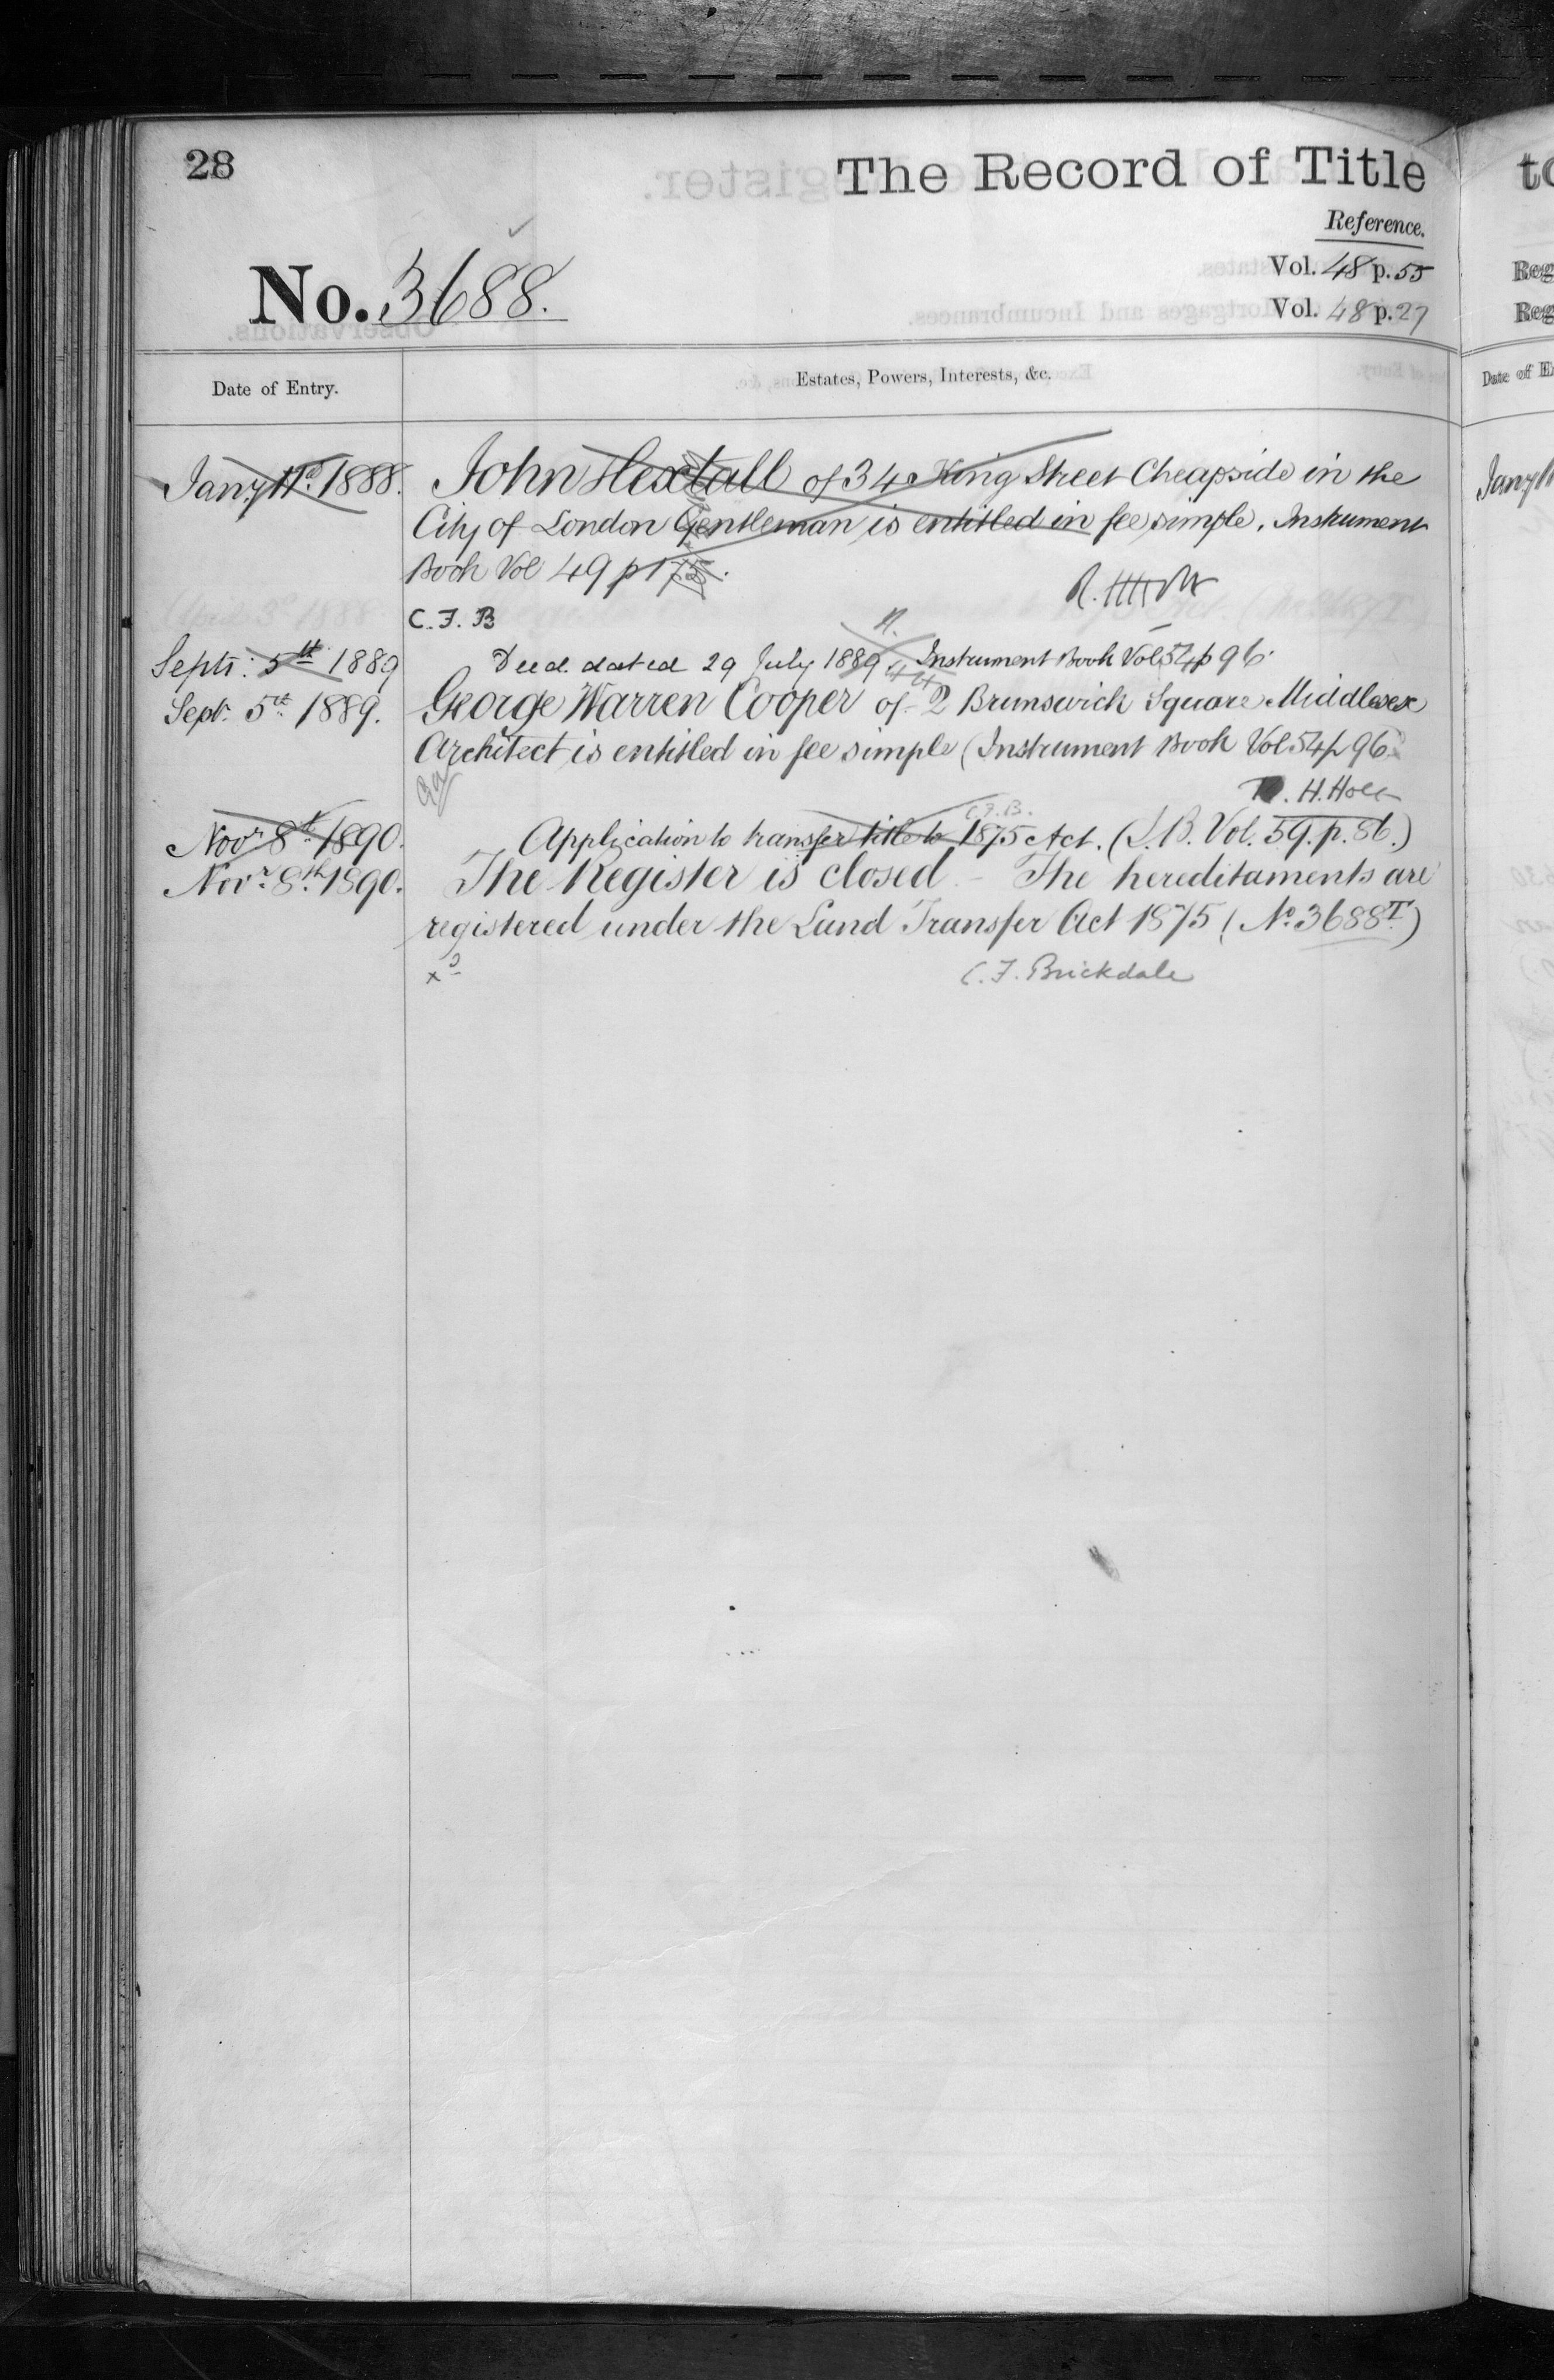 28
The Record of Title
Reference.
Vol. 48 p. 55
No. 3688.
Vol. 48 p. 27
Date of Entry.
Estates, Powers, Interests, &c.
Jany 11th 1888. John Hextall of 34 King Street Cheapside in the
City of London Gentleman is entitled in fee simple. Instrument
Book Vol 49 p
C. F. B
Septr: 5th 1889 Deed dated 29 July 1889 Instrument Book Vol 54 p 96.
Sepr. 5th 1889. George Warren Cooper of 2 Brunswick Square Middlesex
Architect is entitled in fee simple (Instrument Book Vol 54 p 96
H. Holt
C.F.B.
Novr 8th 1890. Application to transfer title to 1875 Act. (I.B. Vol. 59. p. 86.)
Novr. 8th 1890. The Register is closed – The hereditaments are
registered under the Land Transfer Act 1875 (No. 3688T)
C. F. Brickdale
to
Reg
Reg
Date of E
Jany 11